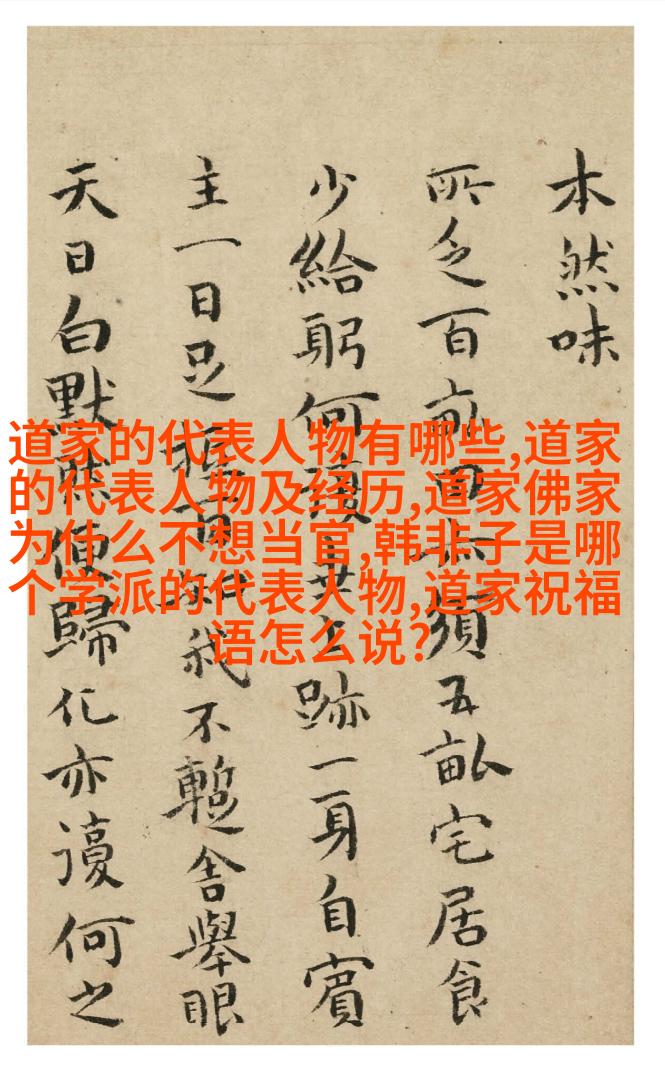 道家的代表人物有哪些,道家
的代表人物及经历,道家佛家
为什么不想当官,韩非子是哪
个学派的代表人物,道家祝福
语怎么说?
本然味
所乏百畝田須五畝宅居食
少給躬何跡一身自賓
主一日足我不蹔舍舉眼
天日白默便歸化亦何之